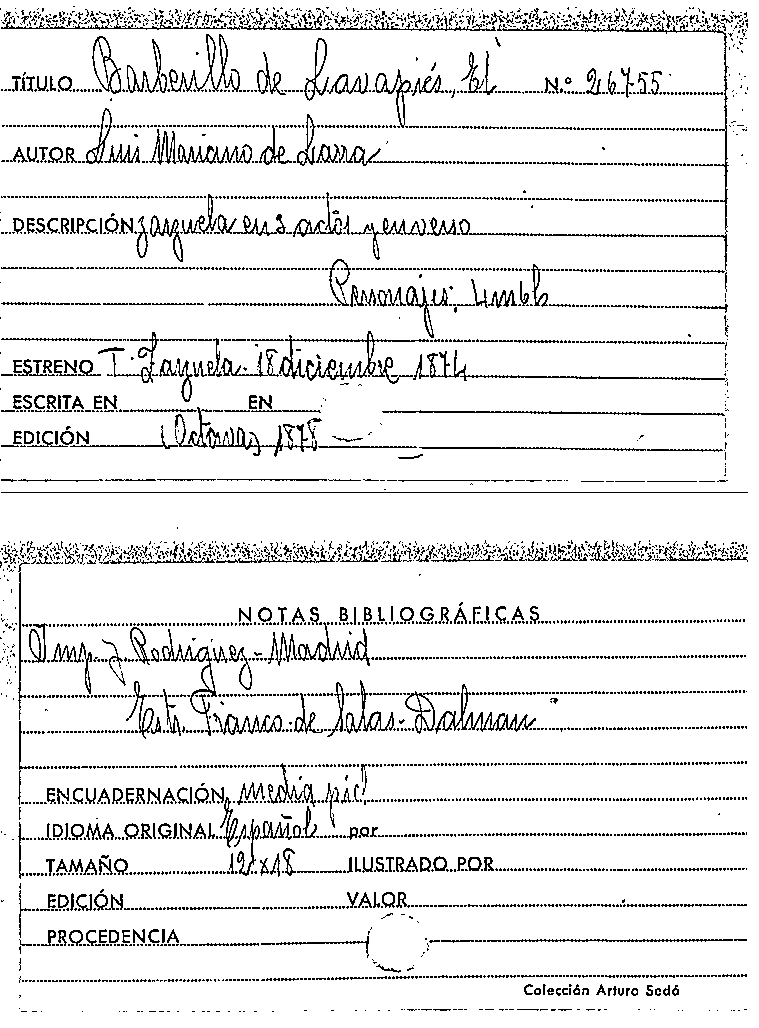 TÍTULO Barberillo de Lavapiés, El N.º 26755
AUTOR Luis Mariano de Larra
DESCRIPCIÓN zarzuela en 3 actos y en verso
Personajes: 4m6h
ESTRENO T. Zazuela. 18 diciembre 1874
ESCRITA EN EN
EDICIÓN (Octava) 1878
NOTAS BIBLIOGRÁFICAS
Imp. J Rodriguez - Madrid
Estr. Franco de Salas - Dalmau
ENCUADERNACIÓN media piel
IDIOMA ORIGINAL Español por
TAMAÑO 12 x 18 ILUSTRADO POR
EDICIÓN VALOR
PROCEDENCIA
Colección Arturo Sedó